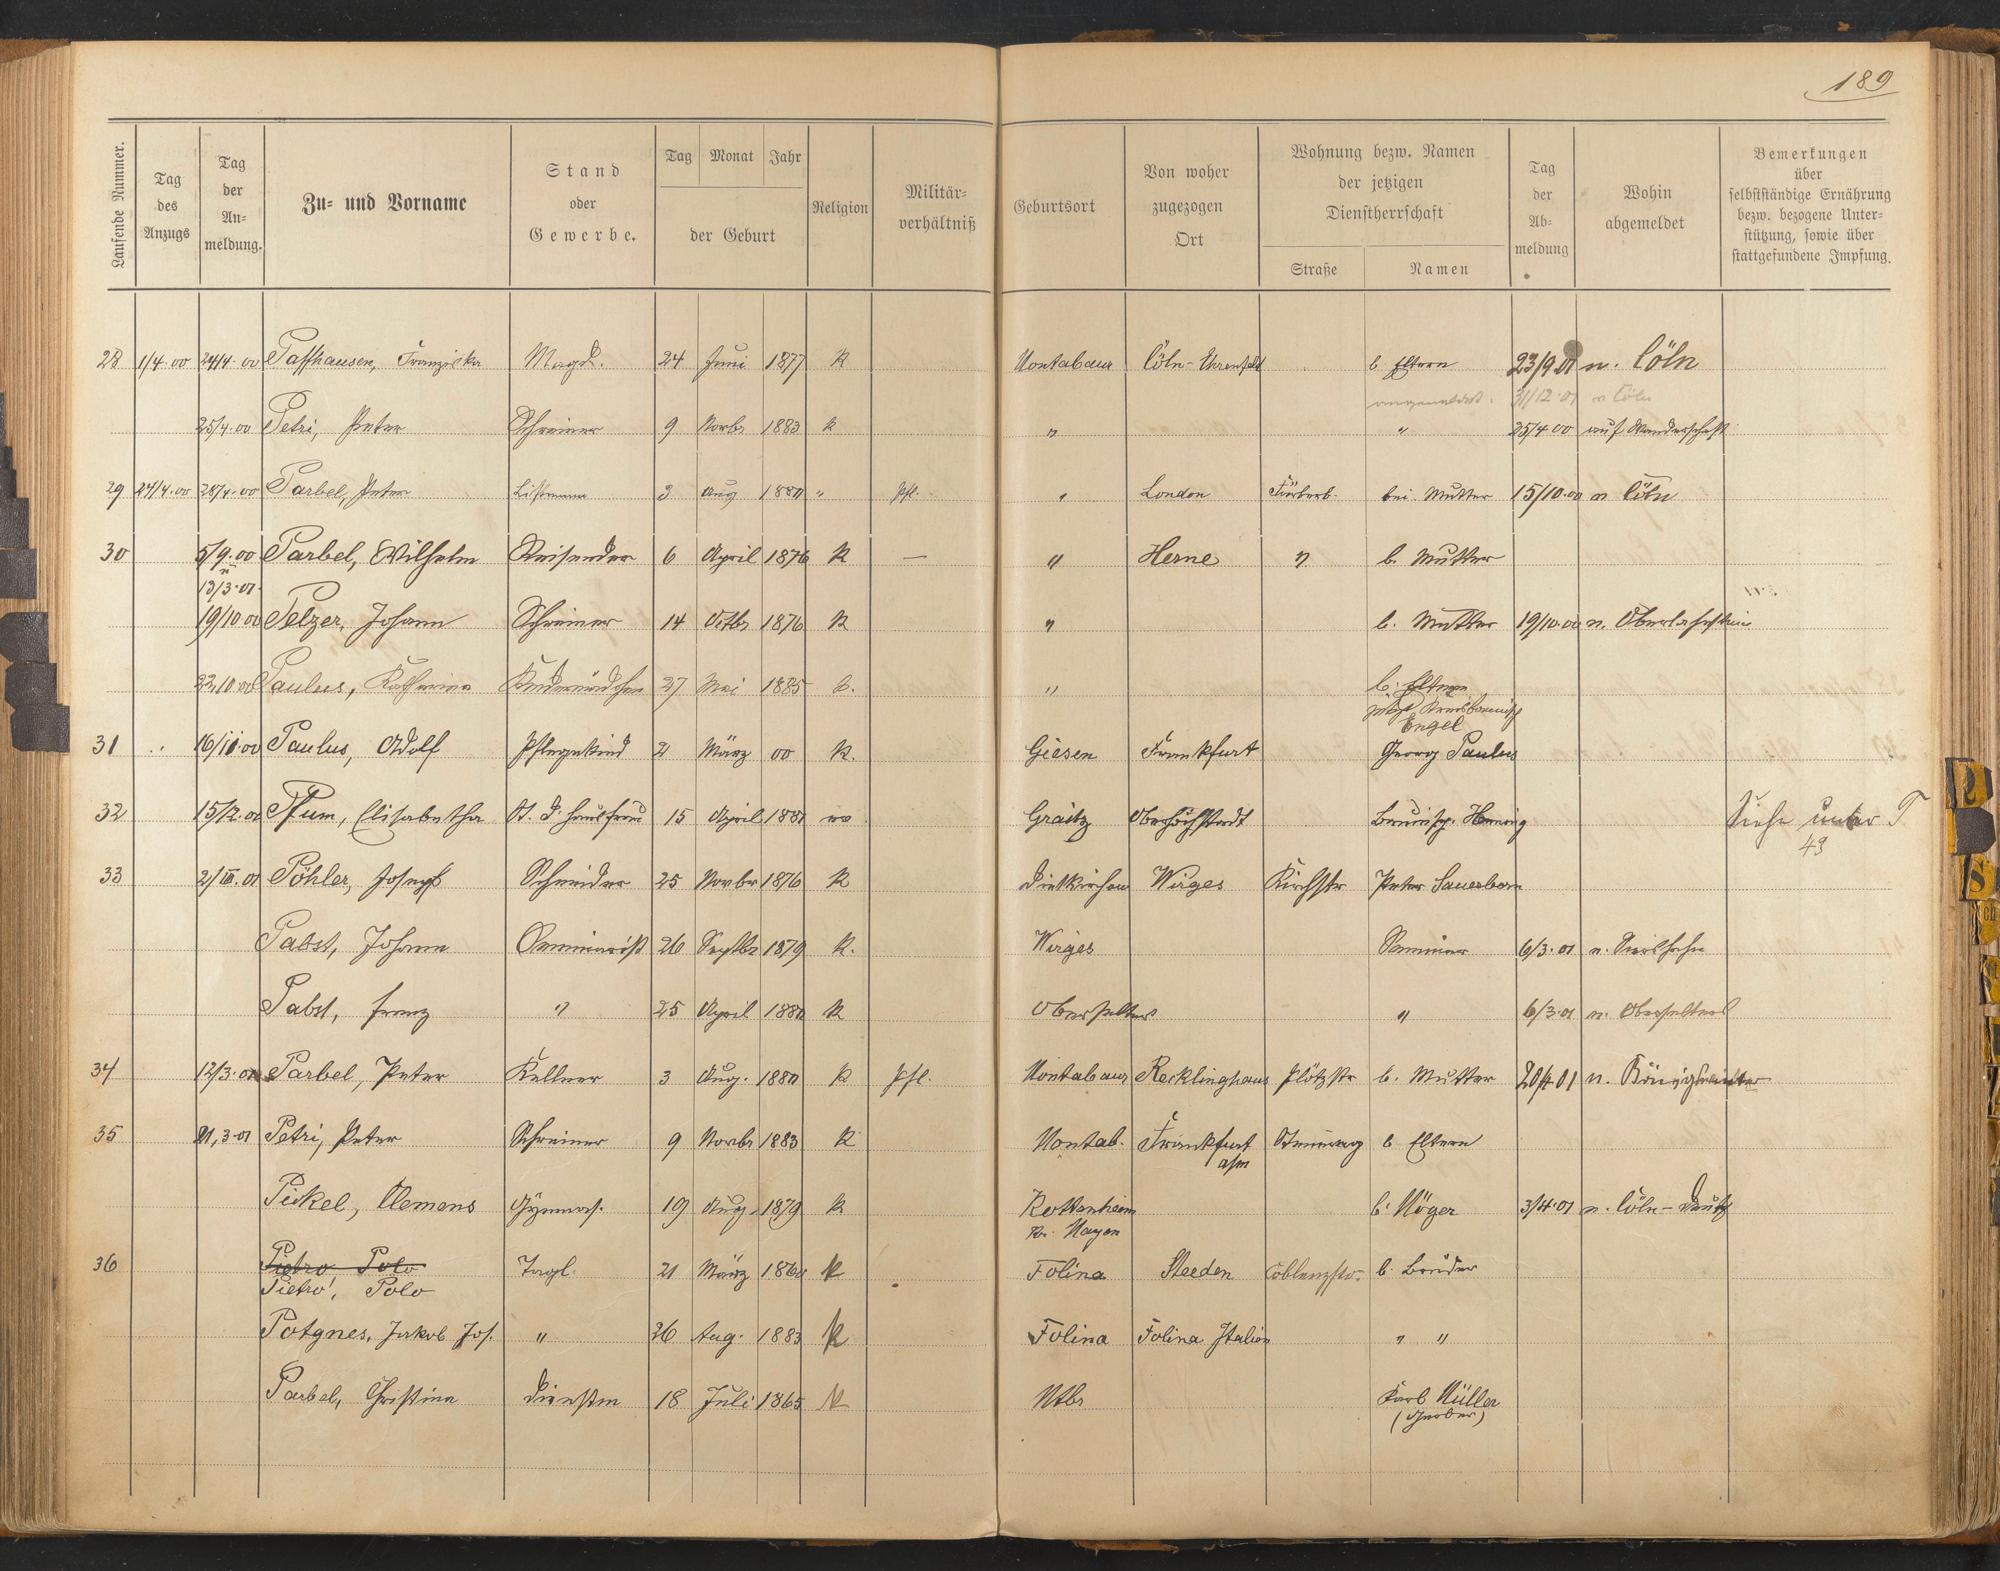 189
Laufende Nummer. Tag des Anzugs Tag der An- meldung. Zu- und Vorname Stand oder Gewerbe. Tag Monat Jahr der Geburt Religion Militär- verhältniß Geburtsort Von woher zugezogen Ort Wohnung bezw. Namen der jetzigen Dienstherrschaft Straße Namen Tag der Ab- meldung Wohin abgemeldet Bemerkungen über selbstständige Ernährung bezw. bezogene Unter- stützung, sowie über stattgefundene Impfung.
28 1/4.00 24/4.00 Paffhausen, Franziska Magd. 24 Juni 1877 K Montabaur Cöln-Ehrenfeld b. Eltern 23/9.01 n. Cöln
31/12.01 n Cöln
25/4.00 Petri, Peter Schreiner 9 Novbr 1883 K " " 25/4 00 auf Wanderschaft
29 24/4.00 28/4.00 Parbel, Peter 3 Aug " Pfl. " London bei Mutter 15/10.00 n Cöln
30 5/9.00 Parbel, Wilhelm Reisender 6 April 1876 K — " Herne " b. Mutter
u
13/3.01.
19/10 00 Pelzer, Johann Schreiner 14 Octbr 1876 K " b. Mutter 19/10.00 n. Oberlahnstein
22.10.00 Paulus, Katharina Kindermädchen 27 Mai 1885 K. " b. Eltern
jetzt
Engel
31 16/11.00 Paulus, Adolf Pflegekind 21 März 00 K. Giesen Frankfurt Georg Paulus
32 15/12.00 Pfum, Elisabetha 15 April ev Graitz Oberhöchstadt Siehe unter P
43
33 2/III.01 Pöhler, Joseph Schneider 25 Novbr 1876 K Dietkirchen Wirges Kirchstr Peter Sauerborn
Pabst, Johann Seminarist 26 Septbr 1879 K. Wirges Seminar 6/3.01 n. Siershahn
Pabst, Franz " 25 April K Oberselters " 6/3.01 n. Oberselters
34 12/3.01 Parbel, Peter Kellner 3 Aug. K Pfl. Montabaur Recklinghaus Plötzstr b. Mutter 20/4 01 n. Königswinter
35 21,3.01 Petri, Peter Schreiner 9 Novbr 1883 K Montab. Frankfurt Steinweg b Eltern
a/m
Pickel, Clemens Gymnas. 19 Aug. 1879 K Kottenheim b. Möger 3/4.01 n. Cöln-Deutz
Kr. Mayen
36 Pietro Polo Tagl. 21 März K Folina Steeden Coblenzstr. b. Bruder
Pietro, Polo
Potgnes, Jakob Jos. " 26 Aug. 1883 K Folina Folina Italien " "
Parbel, Christina Dienstm 18 Juli 1865 K Mtbr Karl Müller
(Gerber)